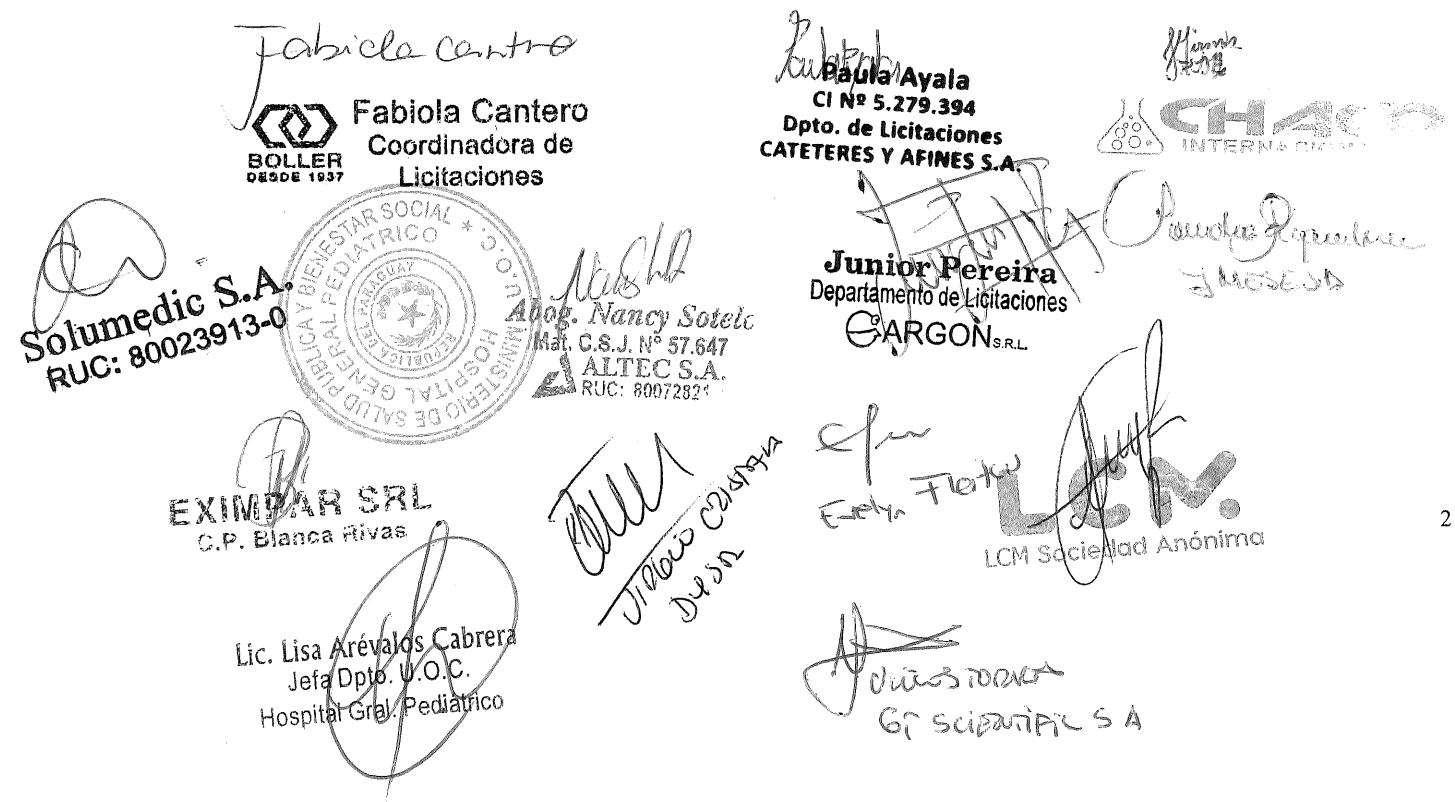 Fabiola Cantero
BOLLER
DESDE 1937
Fabiola Cantero
Coordinadora de
Licitaciones
Paula Ayala
CI Nº 5.279.394
Dpto. de Licitaciones
CATETERES Y AFINES S.A.
CHACO
INTERNACIONAL
Solumedic S.A.
RUC: 80023913-0
MINISTERIO DE SALUD PUBLICA Y BIENESTAR SOCIAL
HOSPITAL GENERAL PEDIATRICO
U.O.C.
REPUBLICA DEL PARAGUAY
Abog. Nancy Sotelo
Mat. C.S.J. Nº 57.647
ALTEC S.A.
RUC: 8007282
Junior Pereira
Departamento de Licitaciones
ARGON S.R.L.
EXIMPAR SRL
C.P. Blanca Rivas
Evelyn
LCM.
LCM Sociedad Anónima
2
Lic. Lisa Arévalos Cabrera
Jefa Dpto. U.O.C.
Hospital Gral. Pediátrico
GT SCIENTIFIC S A